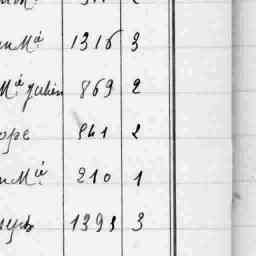 nM.ie 1316 3
M.ie Julien 869 2
ope 561 2
nM.ie 210 1
seph 1393 3